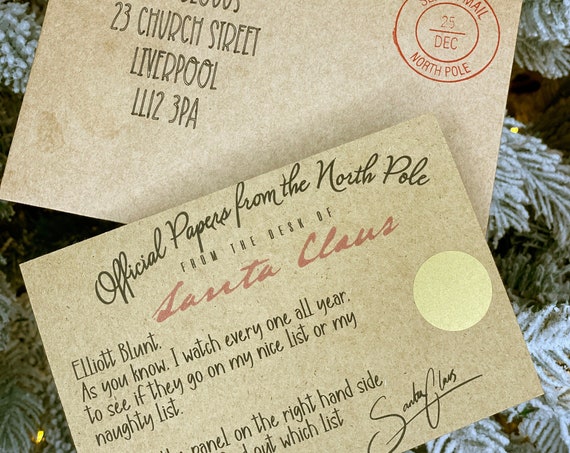 23 CHURCH STREET
LIVERPOOL
LL12 3PA
MAIL
25
DEC
NORTH POLE
Official Papers from the North Pole
FROM THE DESK OF
Santa Claus
Elliott Blunt.
As you know. I watch every one all year.
to see if they go on my nice list or my
naughty list.
panel on the right hand side
out which list
Santa Claus